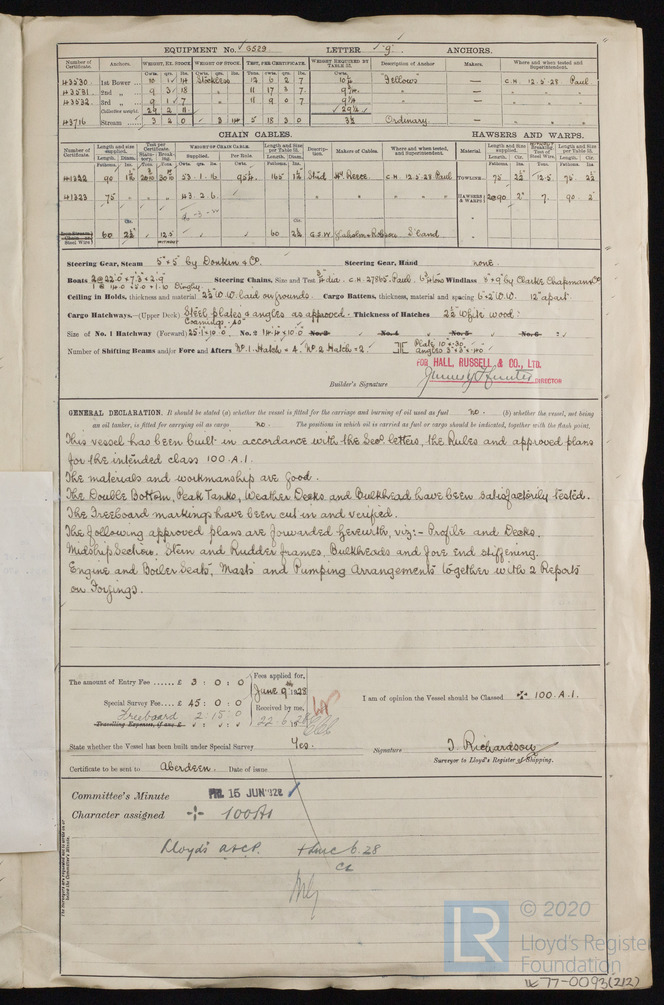 EQUIPMENT No. 6529 LETTER "g" ANCHORS.
Number of Certificate. Anchors. WEIGHT, EX. STOCK. WEIGHT OF STOCK. TEST, PER CERTIFICATE. WEIGHT REQUIRED BY TABLE 22. Description of Anchor Makers. Where and when tested and Superintendent.
Cwts. qrs. lbs. Cwts. qrs. lbs. Tons. cwts. qrs. lbs. Cwts.
43530 1st Bower 10 1 14 Stockless 12 6 2 7 "Fellows" — C.H. 12.5.28 Paul
43531 2nd " 9 3 18 " 11 17 3 7 " — " " "
43532 3rd " 9 1 7 " 11 9 0 7 9¼ " — " " "
Collective weight 29 2 11 29¼
43716 Stream 3 2 0 3 14 5 18 3 0 3½ Ordinary — " " "
CHAIN CABLES. HAWSERS AND WARPS.
Number of Certificate. Length and size supplied. Test per Certificate. WEIGHT OF CHAIN CABLE. Length and Size per Table 22. Description. Makers of Cables. Where and when tested, and Superintendent. Material. Length and Size supplied. Breaking Test of Steel Wire. Length and Size per Table 22.
Length. Diam. Statutory. Breaking. Supplied. Per Rule Length. Diam. Length. Cir. Length. Cir.
41322 90 53.1.16 95¼ 165 Stud Wm Reece C.H. 12.5.28 Paul TOWLINE 75 2½ 12.5 75 2½
41323 75 " " " 43.2.6 " " " " " HAWSERS & WARPS 2@90 2" 7. 90 2
Steel Wire 60 2½ " 12.5 60 2½ G.S.W. S'land
Steering Gear, Steam 5" × 5" by Donkin & Co. Steering Gear, Hand none.
Boats 2 @ 22.0 × 7.3 × 2.9 Steering Chains, Size and Test C.H. 27865. Paul Windlass 5" × 9" by Clarke Chapman & Co
1 @ 14.0 × 5.0 × 1.10 Dingley
Ceiling in Holds, thickness and material 2½ W.W. laid on grounds. Cargo Battens, thickness, material and spacing 6 × 2 W.W. 12" apart.
Cargo Hatchways.—(Upper Deck) Steel plates & angles as approved. Thickness of Hatches 2½ White wood:
Coamings .40
Size of No. 1 Hatchway (Forward) 25.1 × 10.0 No. 2 14.4 × 10.0 No. 3 No. 4 No. 5 No. 6
Number of Shifting Beams and/or Fore and Afters No. 1. Hatch = 4. No. 2 Hatch = 2. Plate 10" × .30
Angles 3" × 3" × .40
FOR HALL, RUSSELL & CO., LTD.
Builder's Signature DIRECTOR
GENERAL DECLARATION. It should be stated (a) whether the vessel is fitted for the carriage and burning of oil used as fuel no. (b) whether the vessel, not being
an oil tanker, is fitted for carrying oil as cargo no. The positions in which oil is carried as fuel or cargo should be indicated, together with the flash point.
This vessel has been built in accordance with the Secy. letters, the Rules and approved plans
for the intended class 100.A.1.
The materials and workmanship are good.
The Double Bottom, Peak Tanks, Weather Decks and Bulkhead have been satisfactorily tested.
The Freeboard markings have been cut in and verified.
The following approved plans are forwarded herewith, viz:- Profile and Decks.
Midship Section, Stern and Rudder frames, Bulkheads and fore end stiffening.
Engine and Boiler Seats, Masts and Pumping Arrangements together with 2 Reports
on Forgings.
The amount of Entry Fee ...... £ 3 : 0 : 0 Fees applied for,
June 9th 1928
Special Survey Fee .... £ 45 : 0 : 0 Received by me,
Freeboard 2 : 15 : 0 22.6.28
Travelling Expenses, if any £ : :
I am of opinion the Vessel should be Classed ✠ 100.A.1.
State whether the Vessel has been built under Special Survey Yes. Signature J. Richardson
Surveyor to Lloyd's Register of Shipping.
Certificate to be sent to Aberdeen. Date of issue
Committee's Minute FRI. 15 JUN 1928
Character assigned ✠ 100A1
Lloyd's A&CP.
6.28
© 2020
LR
Lloyd's Register
Foundation
77-0093(2/2)